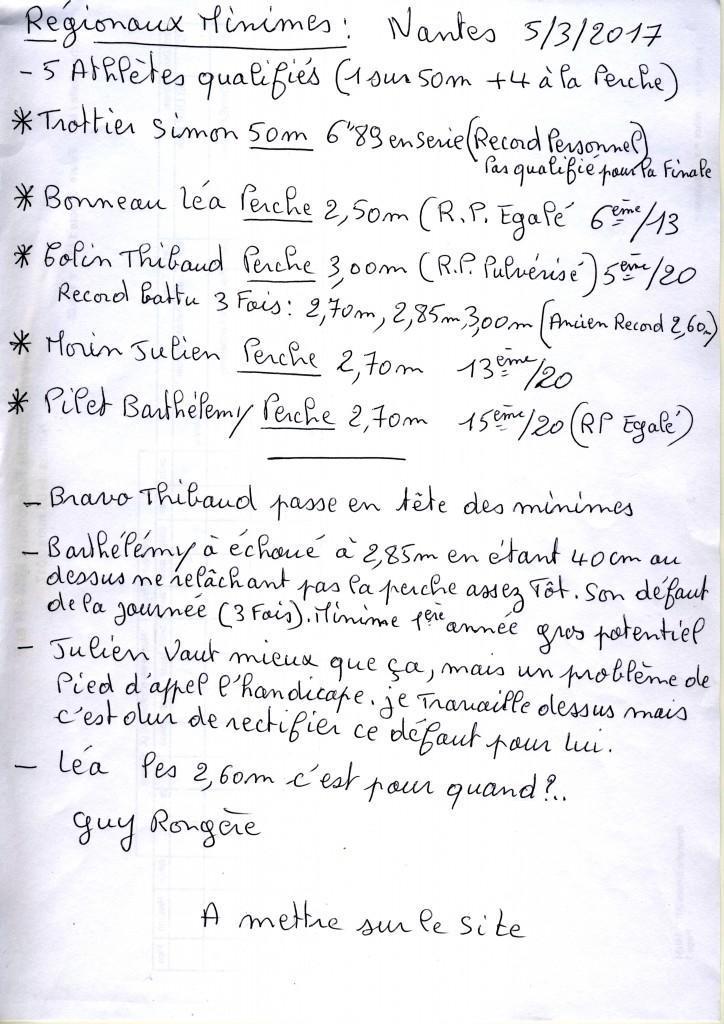 Régionaux Minimes : Nantes 5/3/2017
- 5 Athlètes qualifiés (1 sur 50m + 4 à la Perche)
* Trottier Simon 50m 6"89 en serie (Record Personnel)
Pas qualifié pour la Finale
* Bonneau Léa Perche 2,50m (R.P. Egalé 6ème/13
* Colin Thibaud Perche 3,00m (R.P. Pulvérisé) 5ème/20
Record battu 3 Fois : 2,70m, 2,85m, 3,00m (Ancien Record 2,60m)
* Morin Julien Perche 2,70m 13ème/20
* Pilet Barthélemy Perche 2,70m 15ème/20 (RP Egalé)
- Bravo Thibaud passe en tête des minimes
- Barthélémy à échoué à 2,85m en étant 40cm au
dessus ne relâchant pas la perche assez Tôt. Son défaut
de la journée (3 Fois). Minime 1ère année gros potentiel
- Julien Vaut mieux que ça, mais un problème de
Pied d'appel l'handicape. je Travaille dessus mais
c'est dur de rectifier ce défaut pour lui.
- Léa les 2,60m c'est pour quand ?..
Guy Rongère
A mettre sur le site